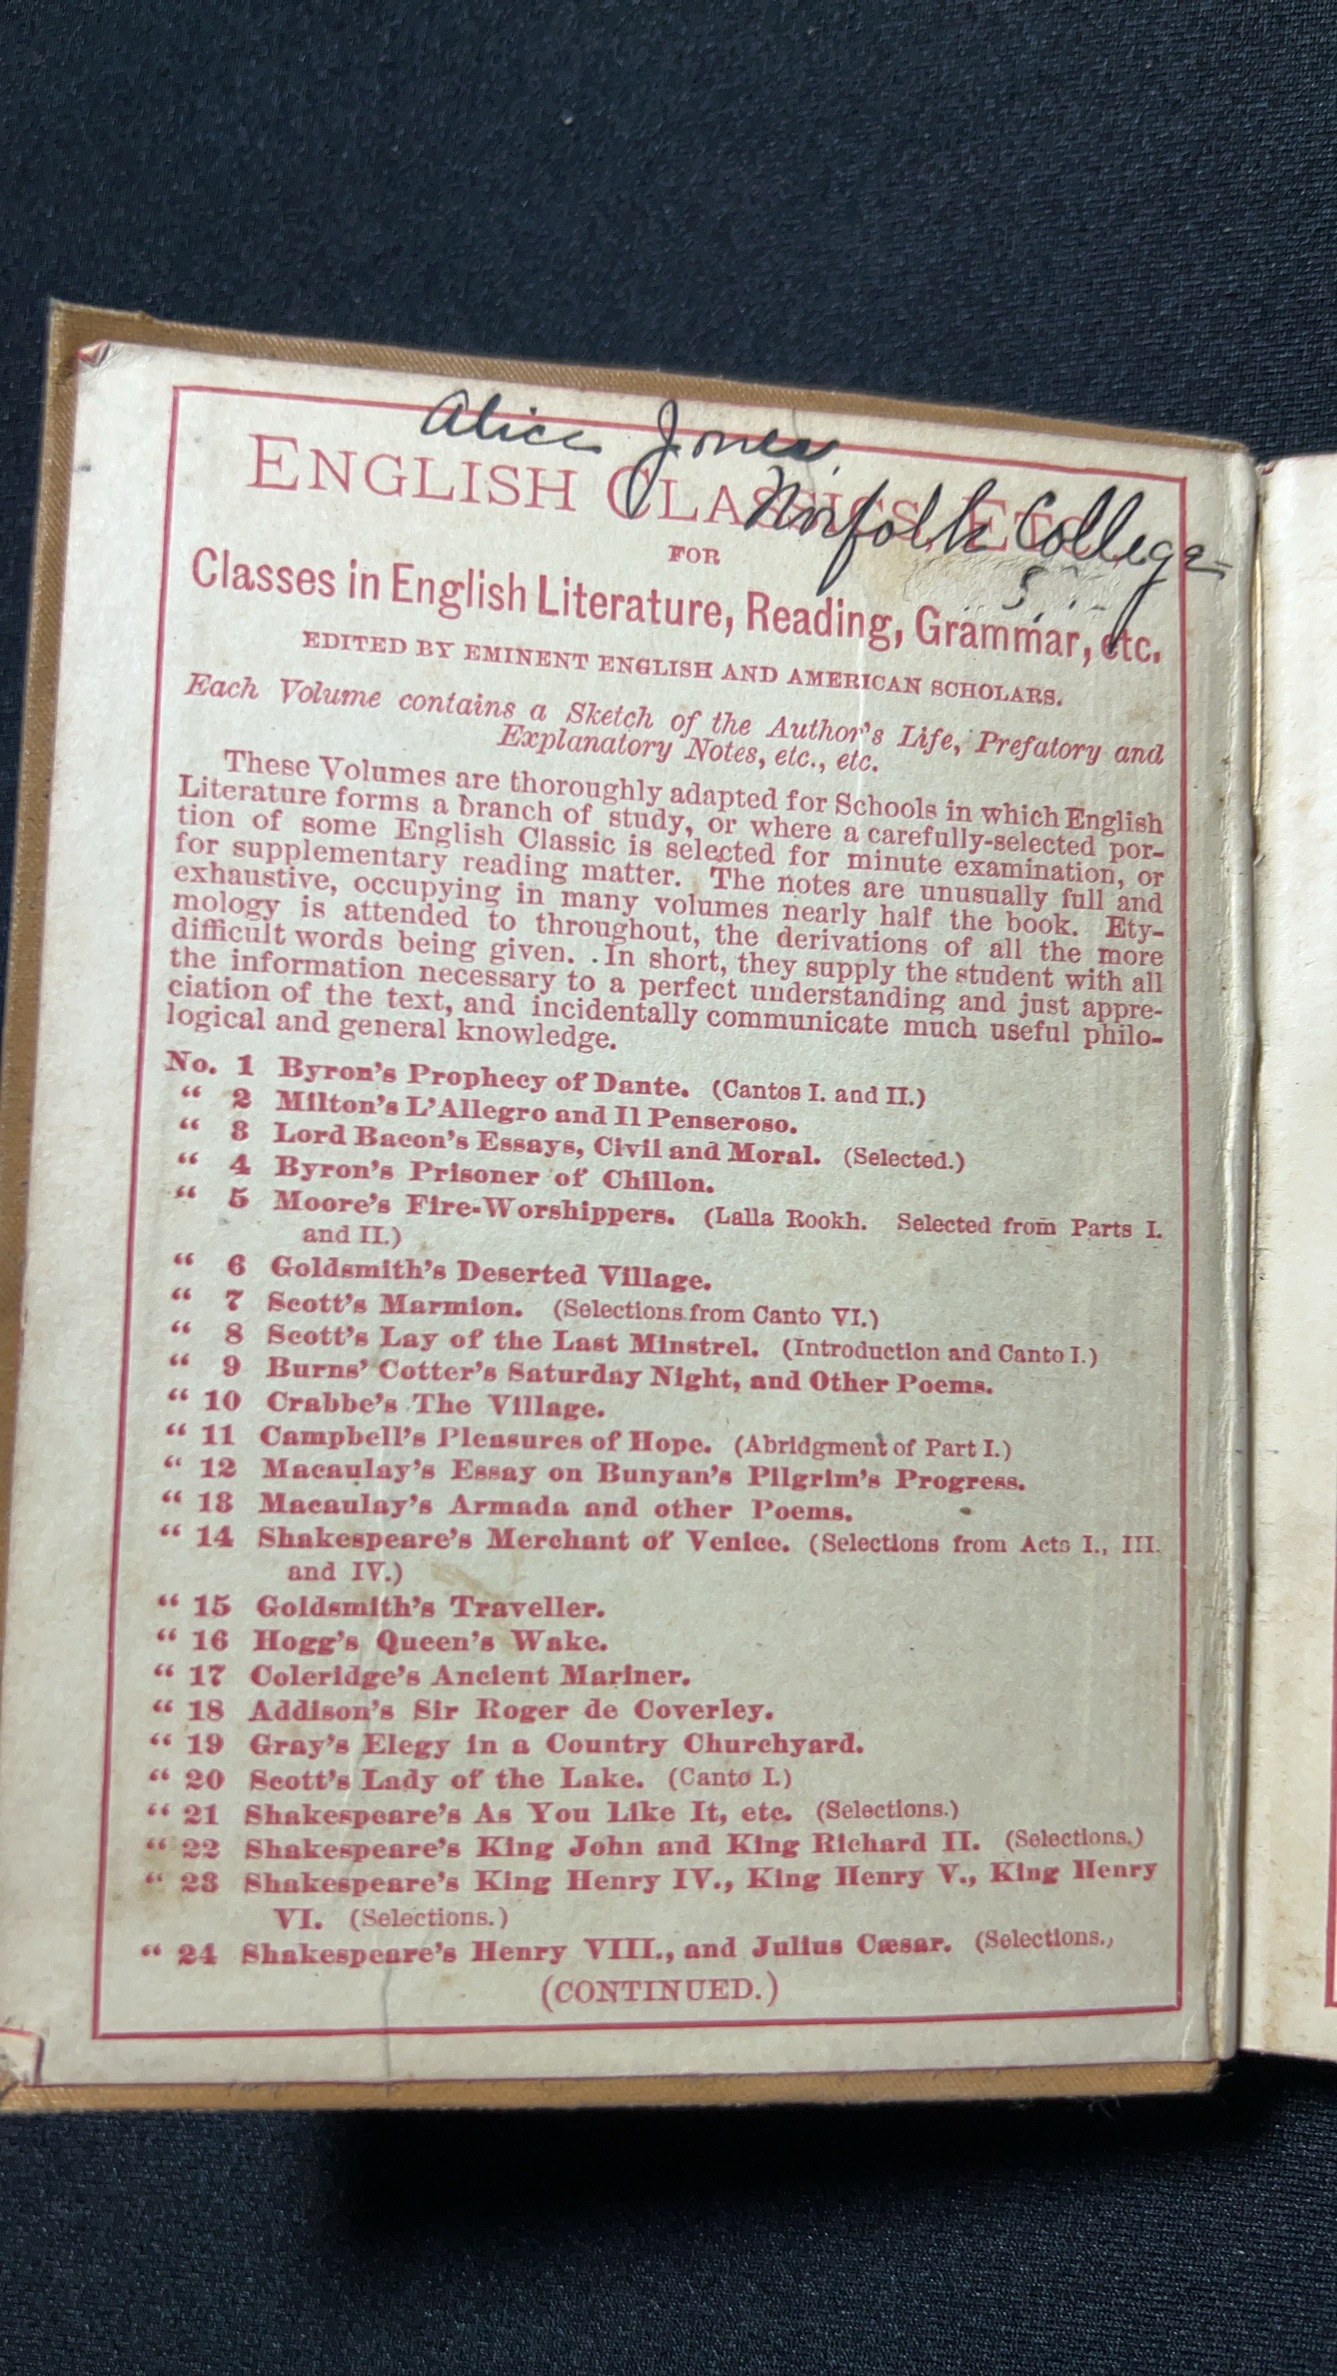 Alice Jones.
Norfolk College
ENGLISH CLASSICS, ETC.,
FOR
Classes in English Literature, Reading, Grammar, etc.
EDITED BY EMINENT ENGLISH AND AMERICAN SCHOLARS.
Each Volume contains a Sketch of the Author's Life, Prefatory and
Explanatory Notes, etc., etc.
These Volumes are thoroughly adapted for Schools in which English
Literature forms a branch of study, or where a carefully-selected por-
tion of some English Classic is selected for minute examination, or
for supplementary reading matter. The notes are unusually full and
exhaustive, occupying in many volumes nearly half the book. Ety-
mology is attended to throughout, the derivations of all the more
difficult words being given. In short, they supply the student with all
the information necessary to a perfect understanding and just appre-
ciation of the text, and incidentally communicate much useful philo-
logical and general knowledge.
No. 1 Byron's Prophecy of Dante. (Cantos I. and II.)
" 2 Milton's L'Allegro and Il Penseroso.
" 3 Lord Bacon's Essays, Civil and Moral. (Selected.)
" 4 Byron's Prisoner of Chillon.
" 5 Moore's Fire-Worshippers. (Lalla Rookh. Selected from Parts I.
and II.)
" 6 Goldsmith's Deserted Village.
" 7 Scott's Marmion. (Selections from Canto VI.)
" 8 Scott's Lay of the Last Minstrel. (Introduction and Canto I.)
" 9 Burns' Cotter's Saturday Night, and Other Poems.
" 10 Crabbe's The Village.
" 11 Campbell's Pleasures of Hope. (Abridgment of Part I.)
" 12 Macaulay's Essay on Bunyan's Pilgrim's Progress.
" 13 Macaulay's Armada and other Poems.
" 14 Shakespeare's Merchant of Venice. (Selections from Acts I., III.
and IV.)
" 15 Goldsmith's Traveller.
" 16 Hogg's Queen's Wake.
" 17 Coleridge's Ancient Mariner.
" 18 Addison's Sir Roger de Coverley.
" 19 Gray's Elegy in a Country Churchyard.
" 20 Scott's Lady of the Lake. (Canto I.)
" 21 Shakespeare's As You Like It, etc. (Selections.)
" 22 Shakespeare's King John and King Richard II. (Selections.)
" 23 Shakespeare's King Henry IV., King Henry V., King Henry
VI. (Selections.)
" 24 Shakespeare's Henry VIII., and Julius Cæsar. (Selections.)
(CONTINUED.)